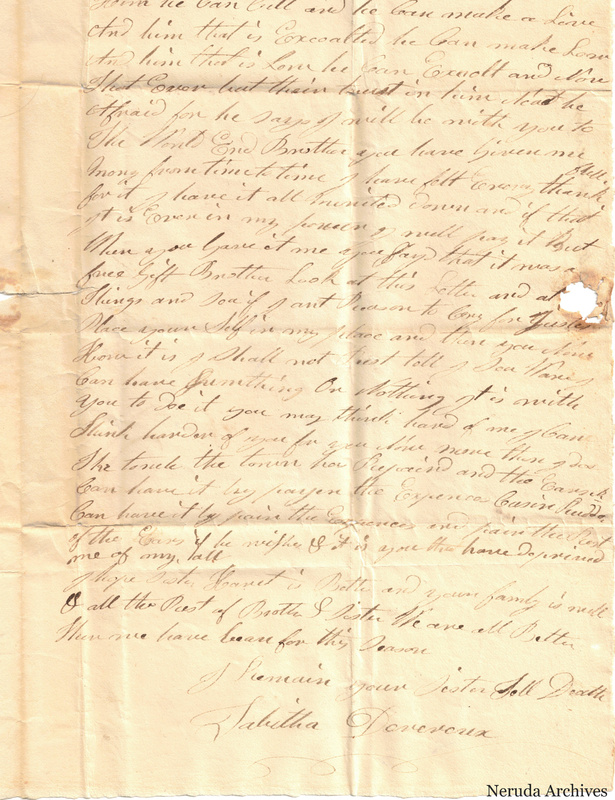 him he Can kill and he Can make a Live
And him that is Excoalted he Can make Low
And him that is Low he Can Exault and
That Ever but their trust in him be
Afraid for he says I will be with you to
The World End Brother you have Given me
mony from time to time I have felt Every thank
for it I have it all down and if that
it is Ever in my power I will pay it But
When you Gave it me you Sayd that it was a
free Gift Brother Look at this Letter and at
things and See if I ant Reason to for
Place your Self in my place and then you
How it is I Shall not Rest tell I
Can have Sumthing Or Nothing it is with
You to Doe it you may think hard of me I Can
think harder of you for you more than I doe
She the town has and the
Can have it by payen the Expence Cusin
Can have it by pain the Expences and pain the Rest
of the if he wishes & it is you that have deprived
me of my all
I hope Sister is Better and your family is well
& all the Rest of Brother & Sister We are all Better
then we have bean for this Season
I Remain your Sister Death
Tabitha Devereux
Neruda Archives